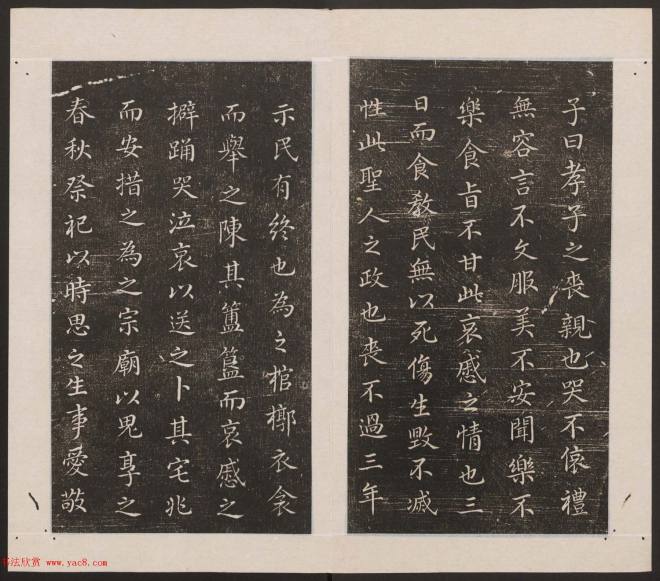 子曰孝子之喪親也哭不偯禮
無容言不文服美不安聞樂不
樂食旨不甘此哀慼之情也三
日而食教民無以死傷生毀不滅
性此聖人之政也喪不過三年
示民有終也為之棺槨衣衾
而舉之陳其簠簋而哀慼之
擗踊哭泣哀以送之卜其宅兆
而安措之為之宗廟以鬼享之
春秋祭祀以時思之生事愛敬
书法欣赏 www.yac8.com